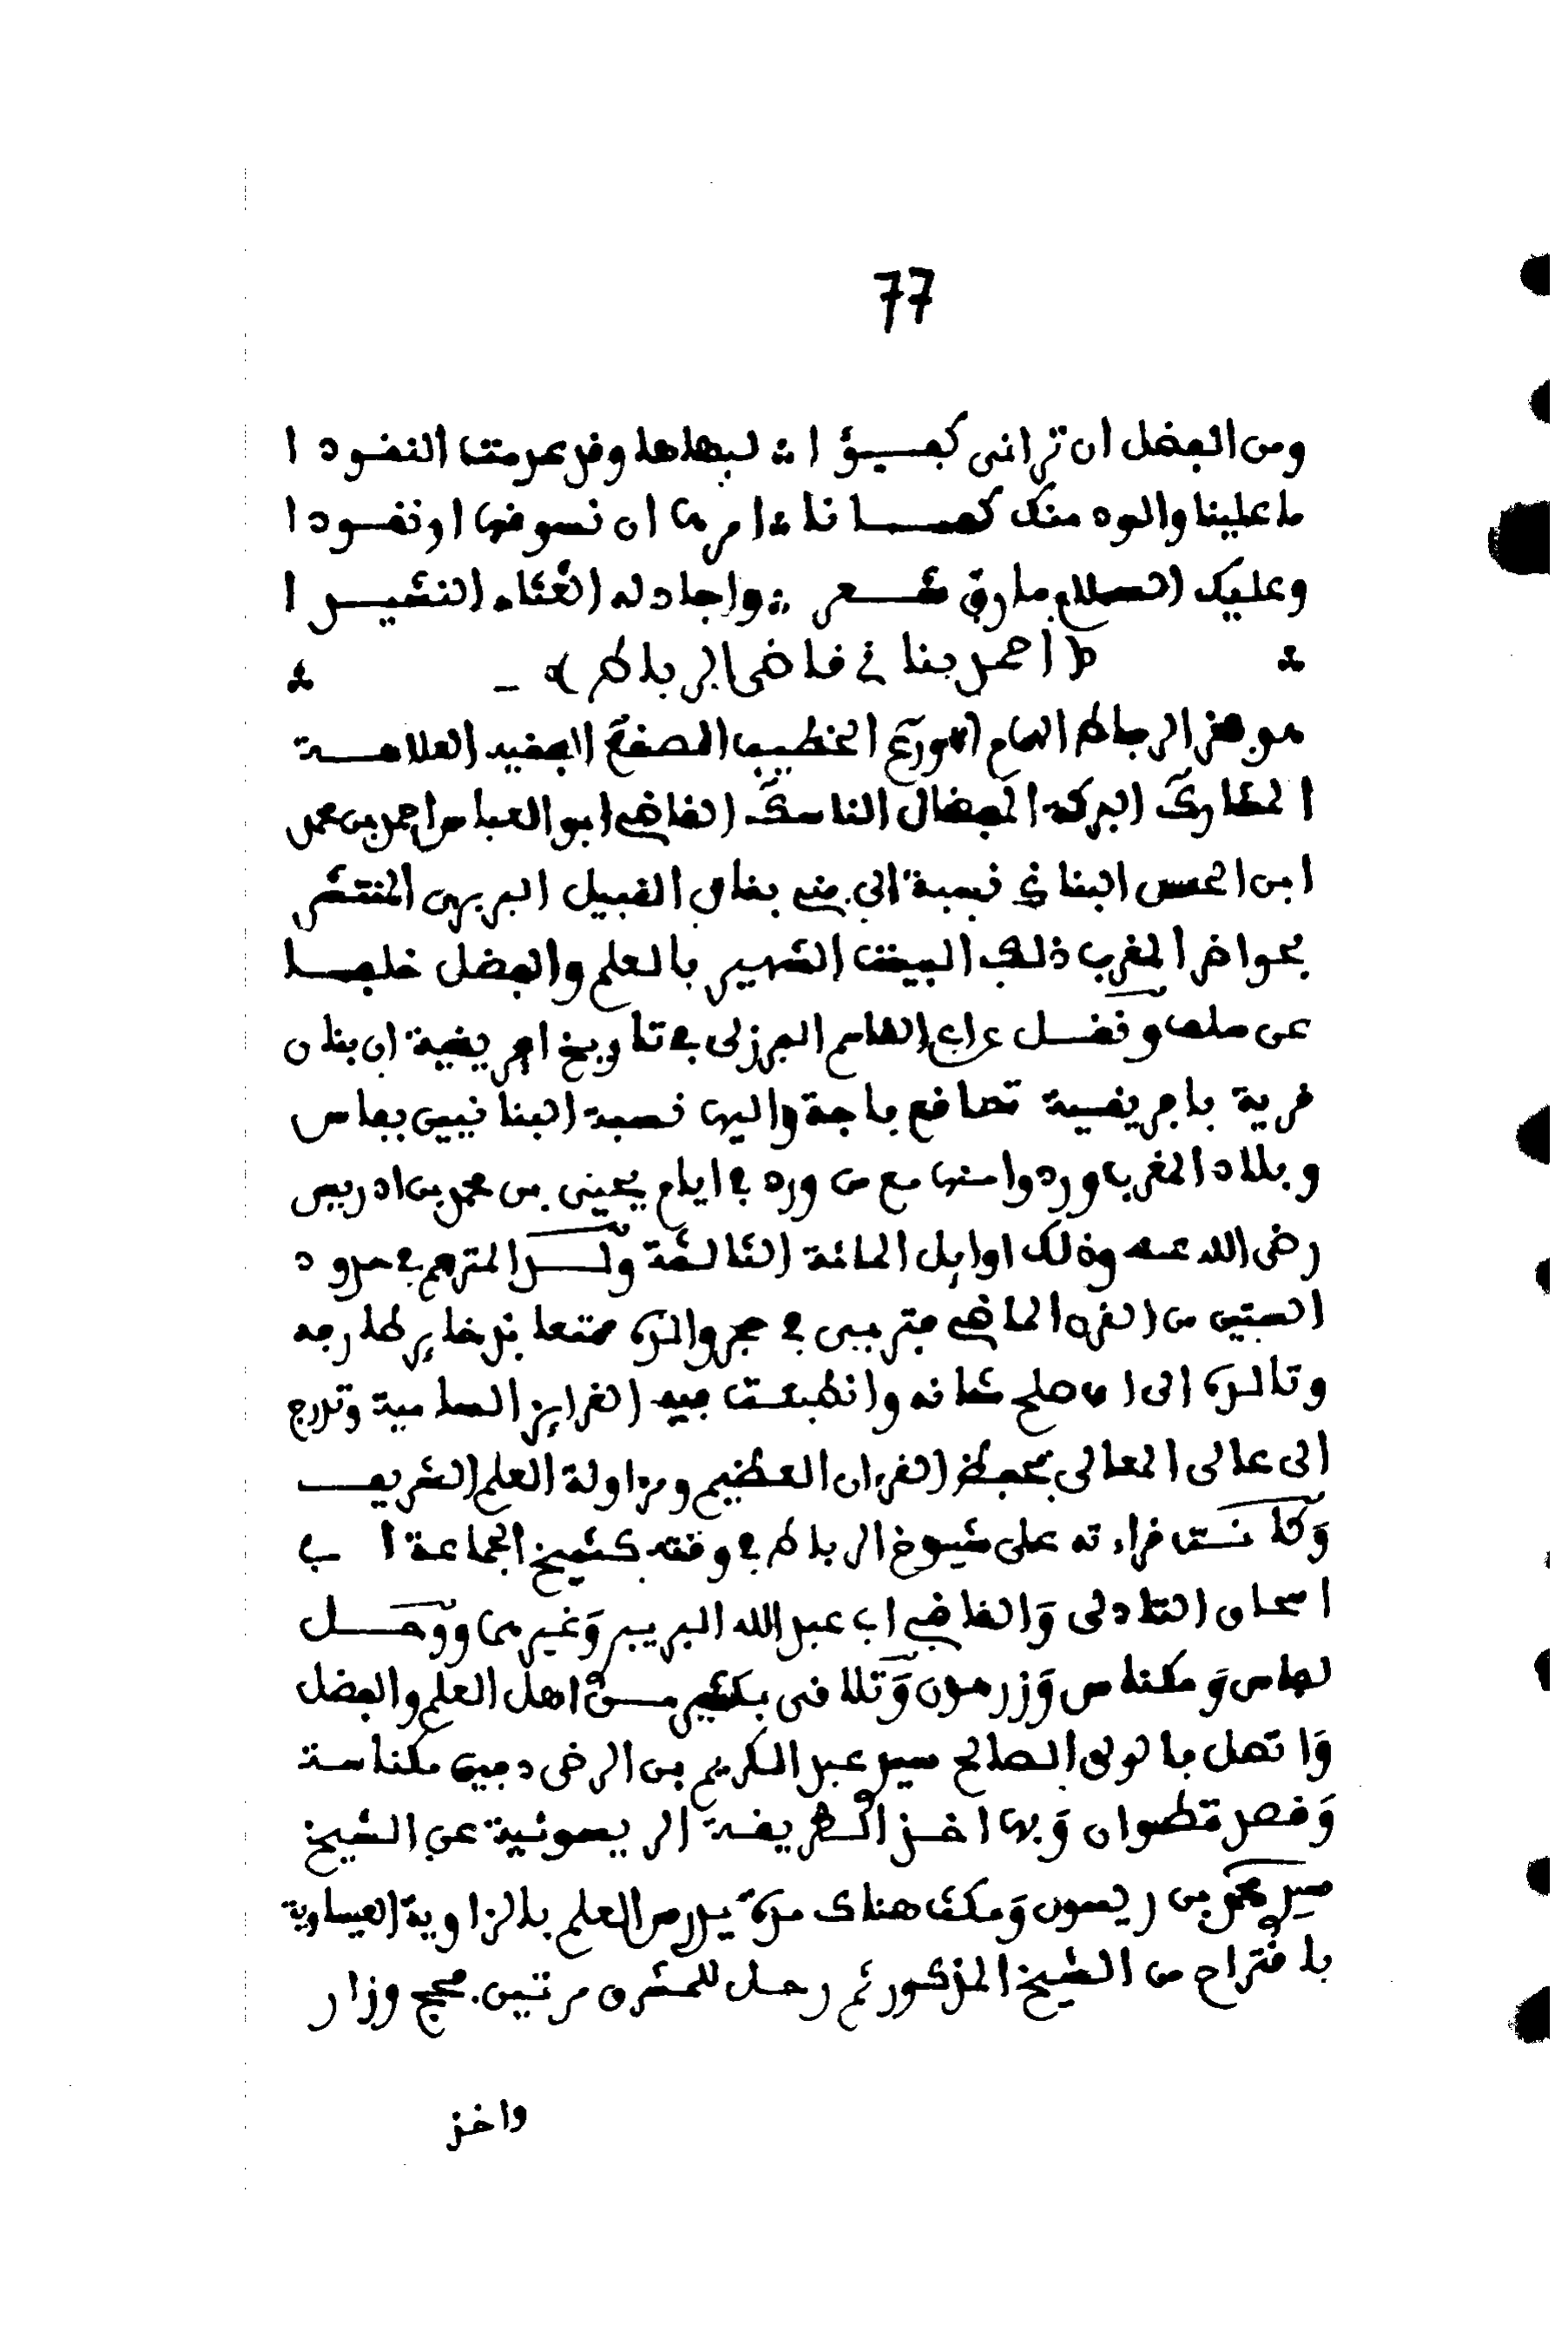 77
ومن الفضل ان ترانى كفـــؤا ∴ لبهاها وقد عدمت النقودا
ما علينا والود منك كفـــانا ∴ امرها ان نسوقها او نقودا
وعليك السلام ما رق شـــعر ∴ واجادله الغثاء النشيـــدا
﴿ احمد بنانى قاضى الرباط ﴾
هو فخر الرباط الهمام الاورع الخطيب المصقع الفقيد العلامـــة
المشارك البركة المفضال الناسك القاضى ابو العباس احمد بن محمد
ابن الحسن البنانى نسبة الى بفاس القبيل البربرى المنتشر
بحواضر المغرب ذلك البيت الشهير بالعلم والفضل خلفـــا
عن سلف ونقـــل عن ابى القاسم البرزلى فى تاريخ افريقية ان بنان
قرية بافريقية تصاقع باجة واليها نسبة البنانيين بفاس
وبلاد المغرب وردوا منها مع من ورد فى ايام يحيى بن محمد بن ادريس
رضى الله عنه وذلك اوايل المائة الثالثة ولـــد المترجم فى حدود
الستين من القرن الماضى فتربى فى حجر والده ممتعا بذخاير طارفه
وتالده الى ان صلح شانه وانطبعت فيه الغرايز السامية وتدرج
الى عالى المعالى بحفظ القرءان العظيم ومزاولة العلم الشريـــف
وكانت قراءته على شيوخ الرباط فى وقته كشيخ الجماعة ابـــى
اسحاق التادلى والقاضى ابى عبد الله البريبر وغيرهما ورحـــل
لفاس ومكناس وزرهون وتلاقى بكثير مـــن اهل العلم والفضل
واتصل بالولى الصالح سيد عبد الكريم بن الرضى دفين مكناسة
وقصد تطوان وبها اخـــذ الطريقة الريسونية عن الشيخ
سيد محمد بن ريسون ومكث هناك مدة يدرس العلم بالزاوية العيساوية
باقتراح من الشيخ المذكور ثم رحـــل للمشرق مرتين فحج وزار
واخذ